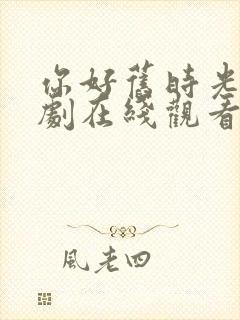 你好舊時光
劇在綫觀看
風老四